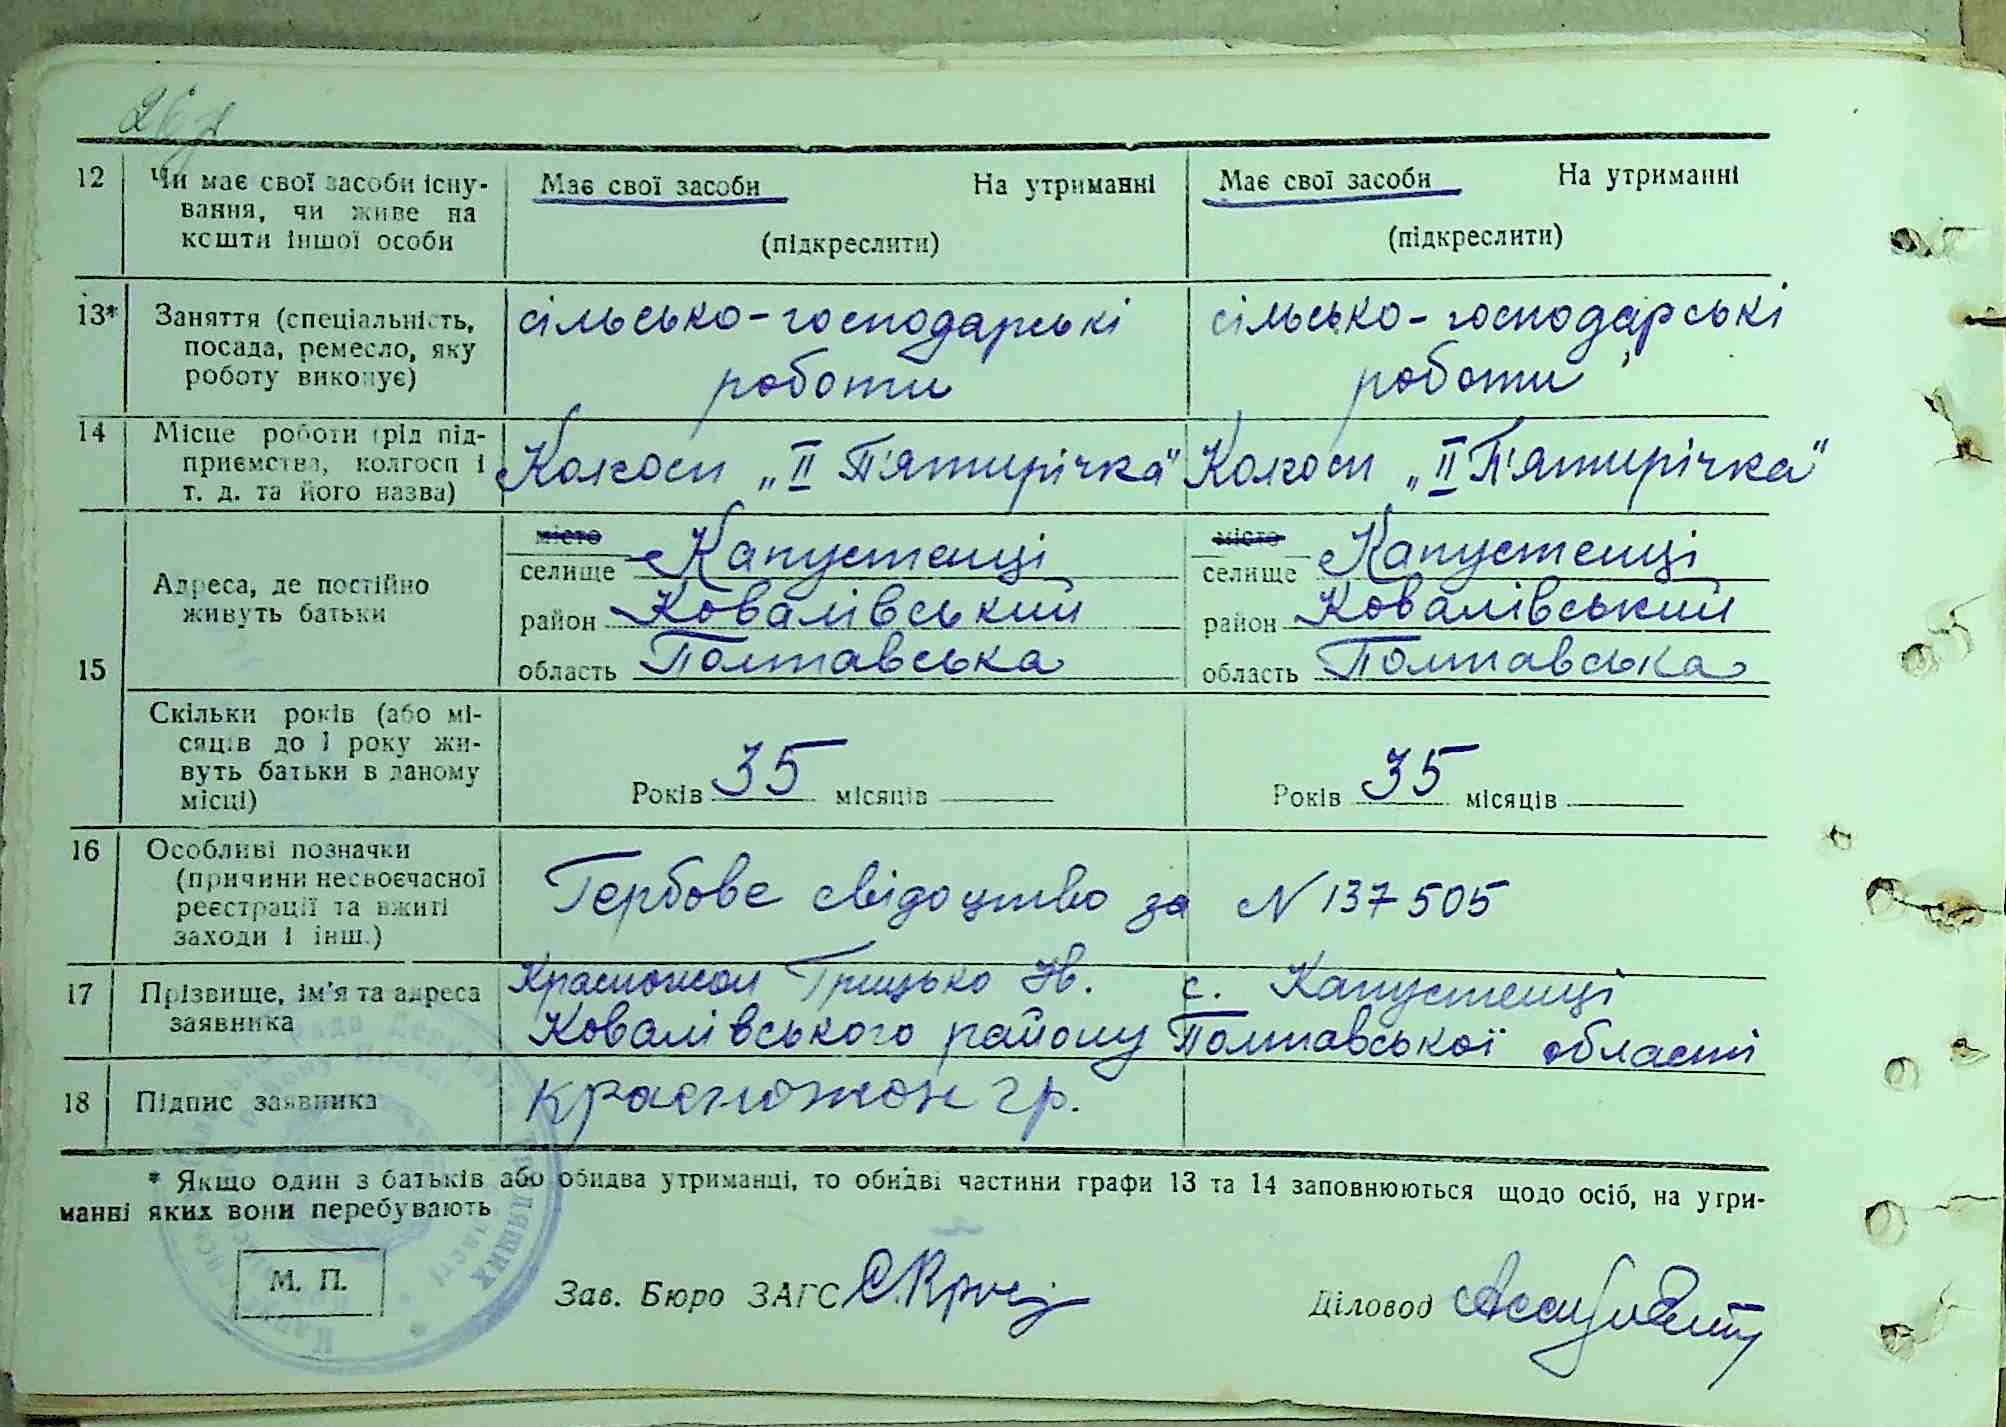 12 Чи має свої засоби існу-
вання, чи живе на
кошти іншої особи
Має свої засоби На утриманні
(підкреслити)
Має свої засоби На утриманні
(підкреслити)
13* Заняття (спеціальність,
посада, ремесло, яку
роботу виконує)
сільсько-господарські
роботи
сільсько-господарські
роботи
14 Місце роботи (рід під-
приємства, колгосп і
т. д. та його назва)
Колгосп „II П'ятирічка"
Колгосп „II П'ятирічка"
15
Адреса, де постійно
живуть батьки
місто
селище Капустенці
район Ковалівський
область Полтавська
місто
селище Капустенці
район Ковалівський
область Полтавська
Скільки років (або мі-
сяців до 1 року жи-
вуть батьки в даному
місці)
Років 35 місяців
Років 35 місяців
16 Особливі позначки
(причини несвоєчасної
реєстрації та вжиті
заходи і інш.)
Гербове свідоцтво за N 137505
17 Прізвище, ім'я та адреса
заявника
Красножон Грицько Ів. с. Капустенці
Ковалівського району Полтавської області
18 Підпис заявника
Красножон гр.
* Якщо один з батьків або обидва утриманці, то обидві частини графи 13 та 14 заповнюються щодо осіб, на утри-
манні яких вони перебувають
М. П.
Зав. Бюро ЗАГС
Діловод